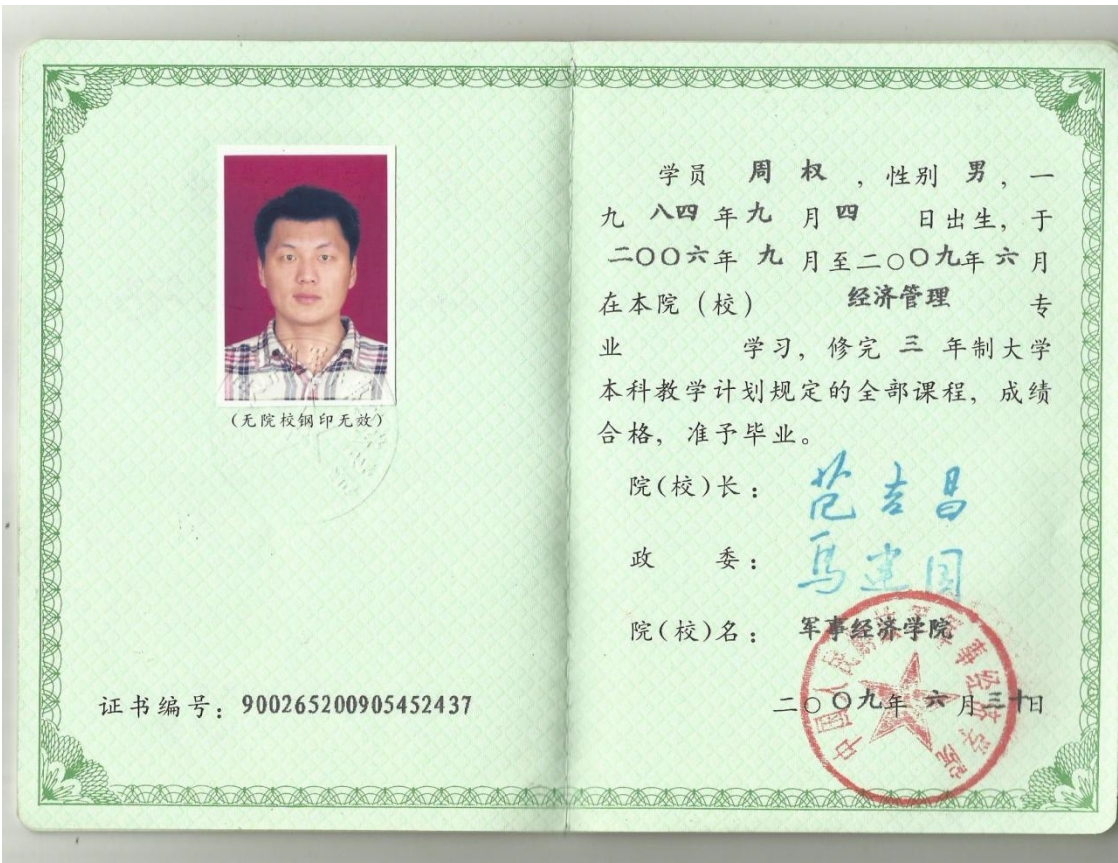 (无院校钢印无效)
证书编号：900265200905452437
学员 周权，性别 男，一
九八四年九月四 日出生，于
二〇〇六年 九 月至二〇〇九年 六 月
在本院（校） 经济管理 专
业 学习，修完 三 年制大学
本科教学计划规定的全部课程，成绩
合格，准予毕业。
院(校)长：范吉昌
政 委：马建国
院(校)名：军事经济学院
二〇〇九年 六 月三十日
中国人民解放军军事经济学院